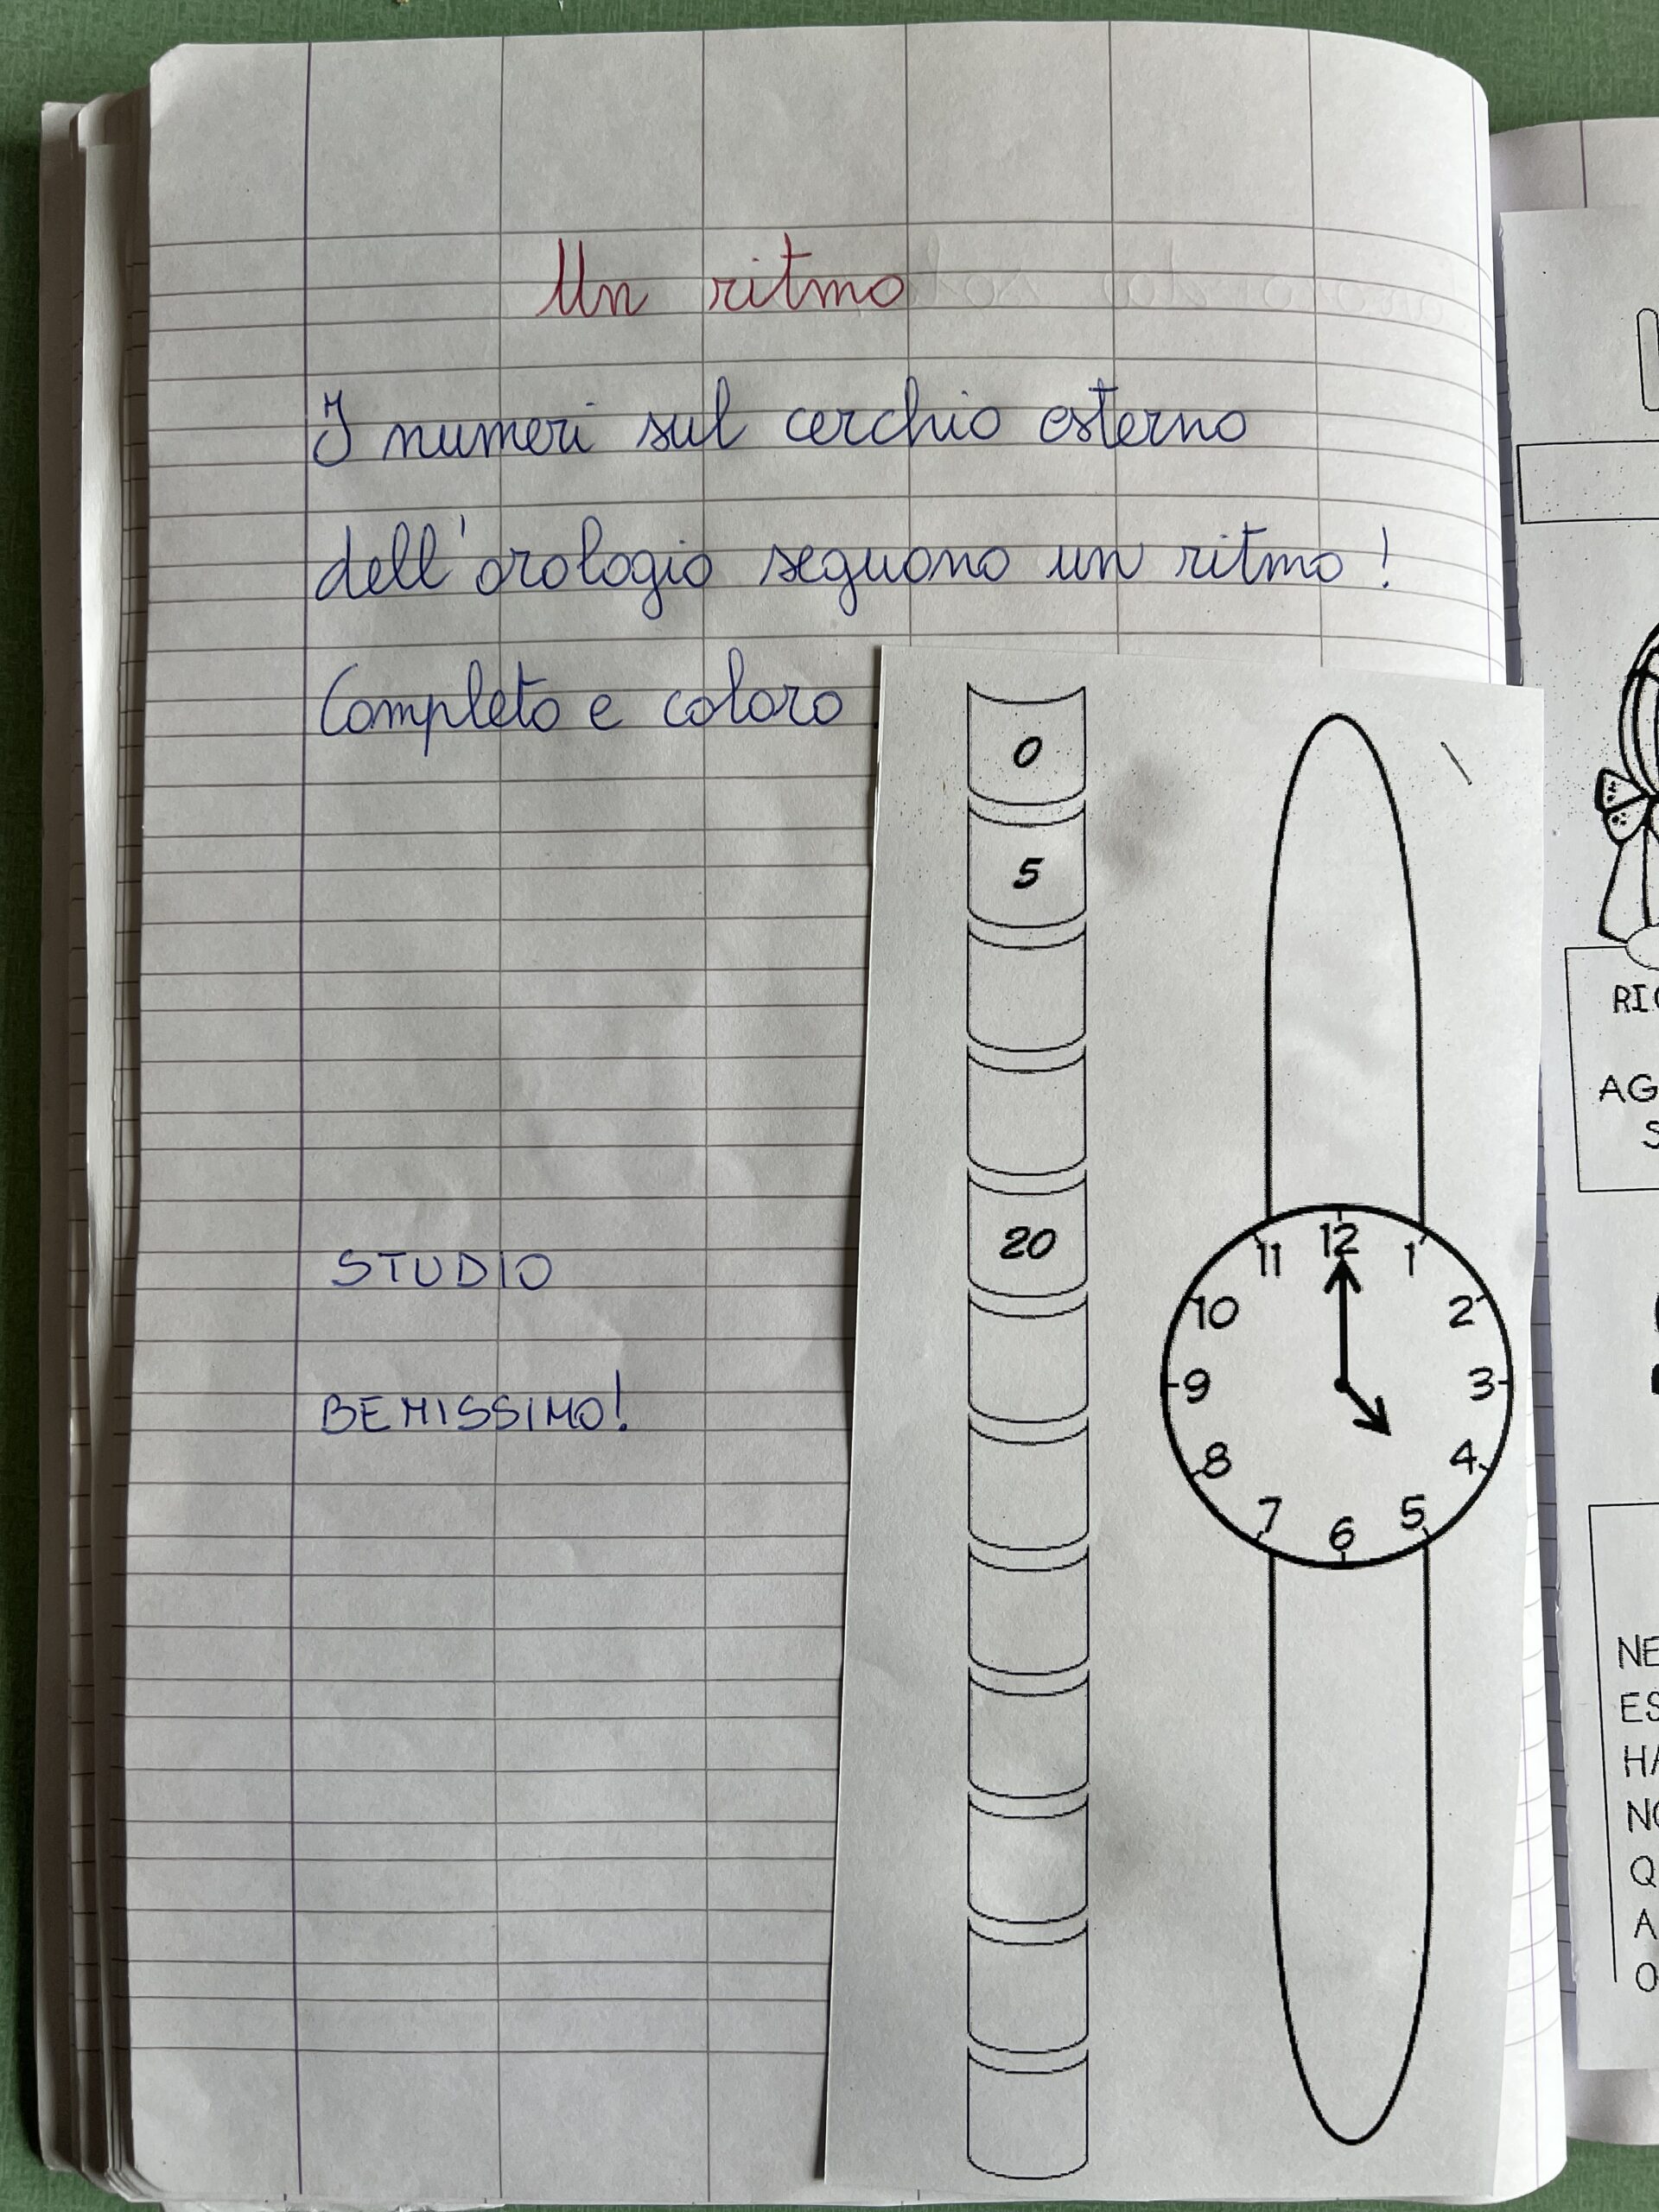 Un ritmo
I numeri sul cerchio esterno
dell'orologio seguono un ritmo!
Completo e coloro.
STUDIO
BENISSIMO!
0
5
20
12
1
2
3
4
5
6
7
8
9
10
11
RIC
AG
S
NE
ES
HA
NO
Q
A
O